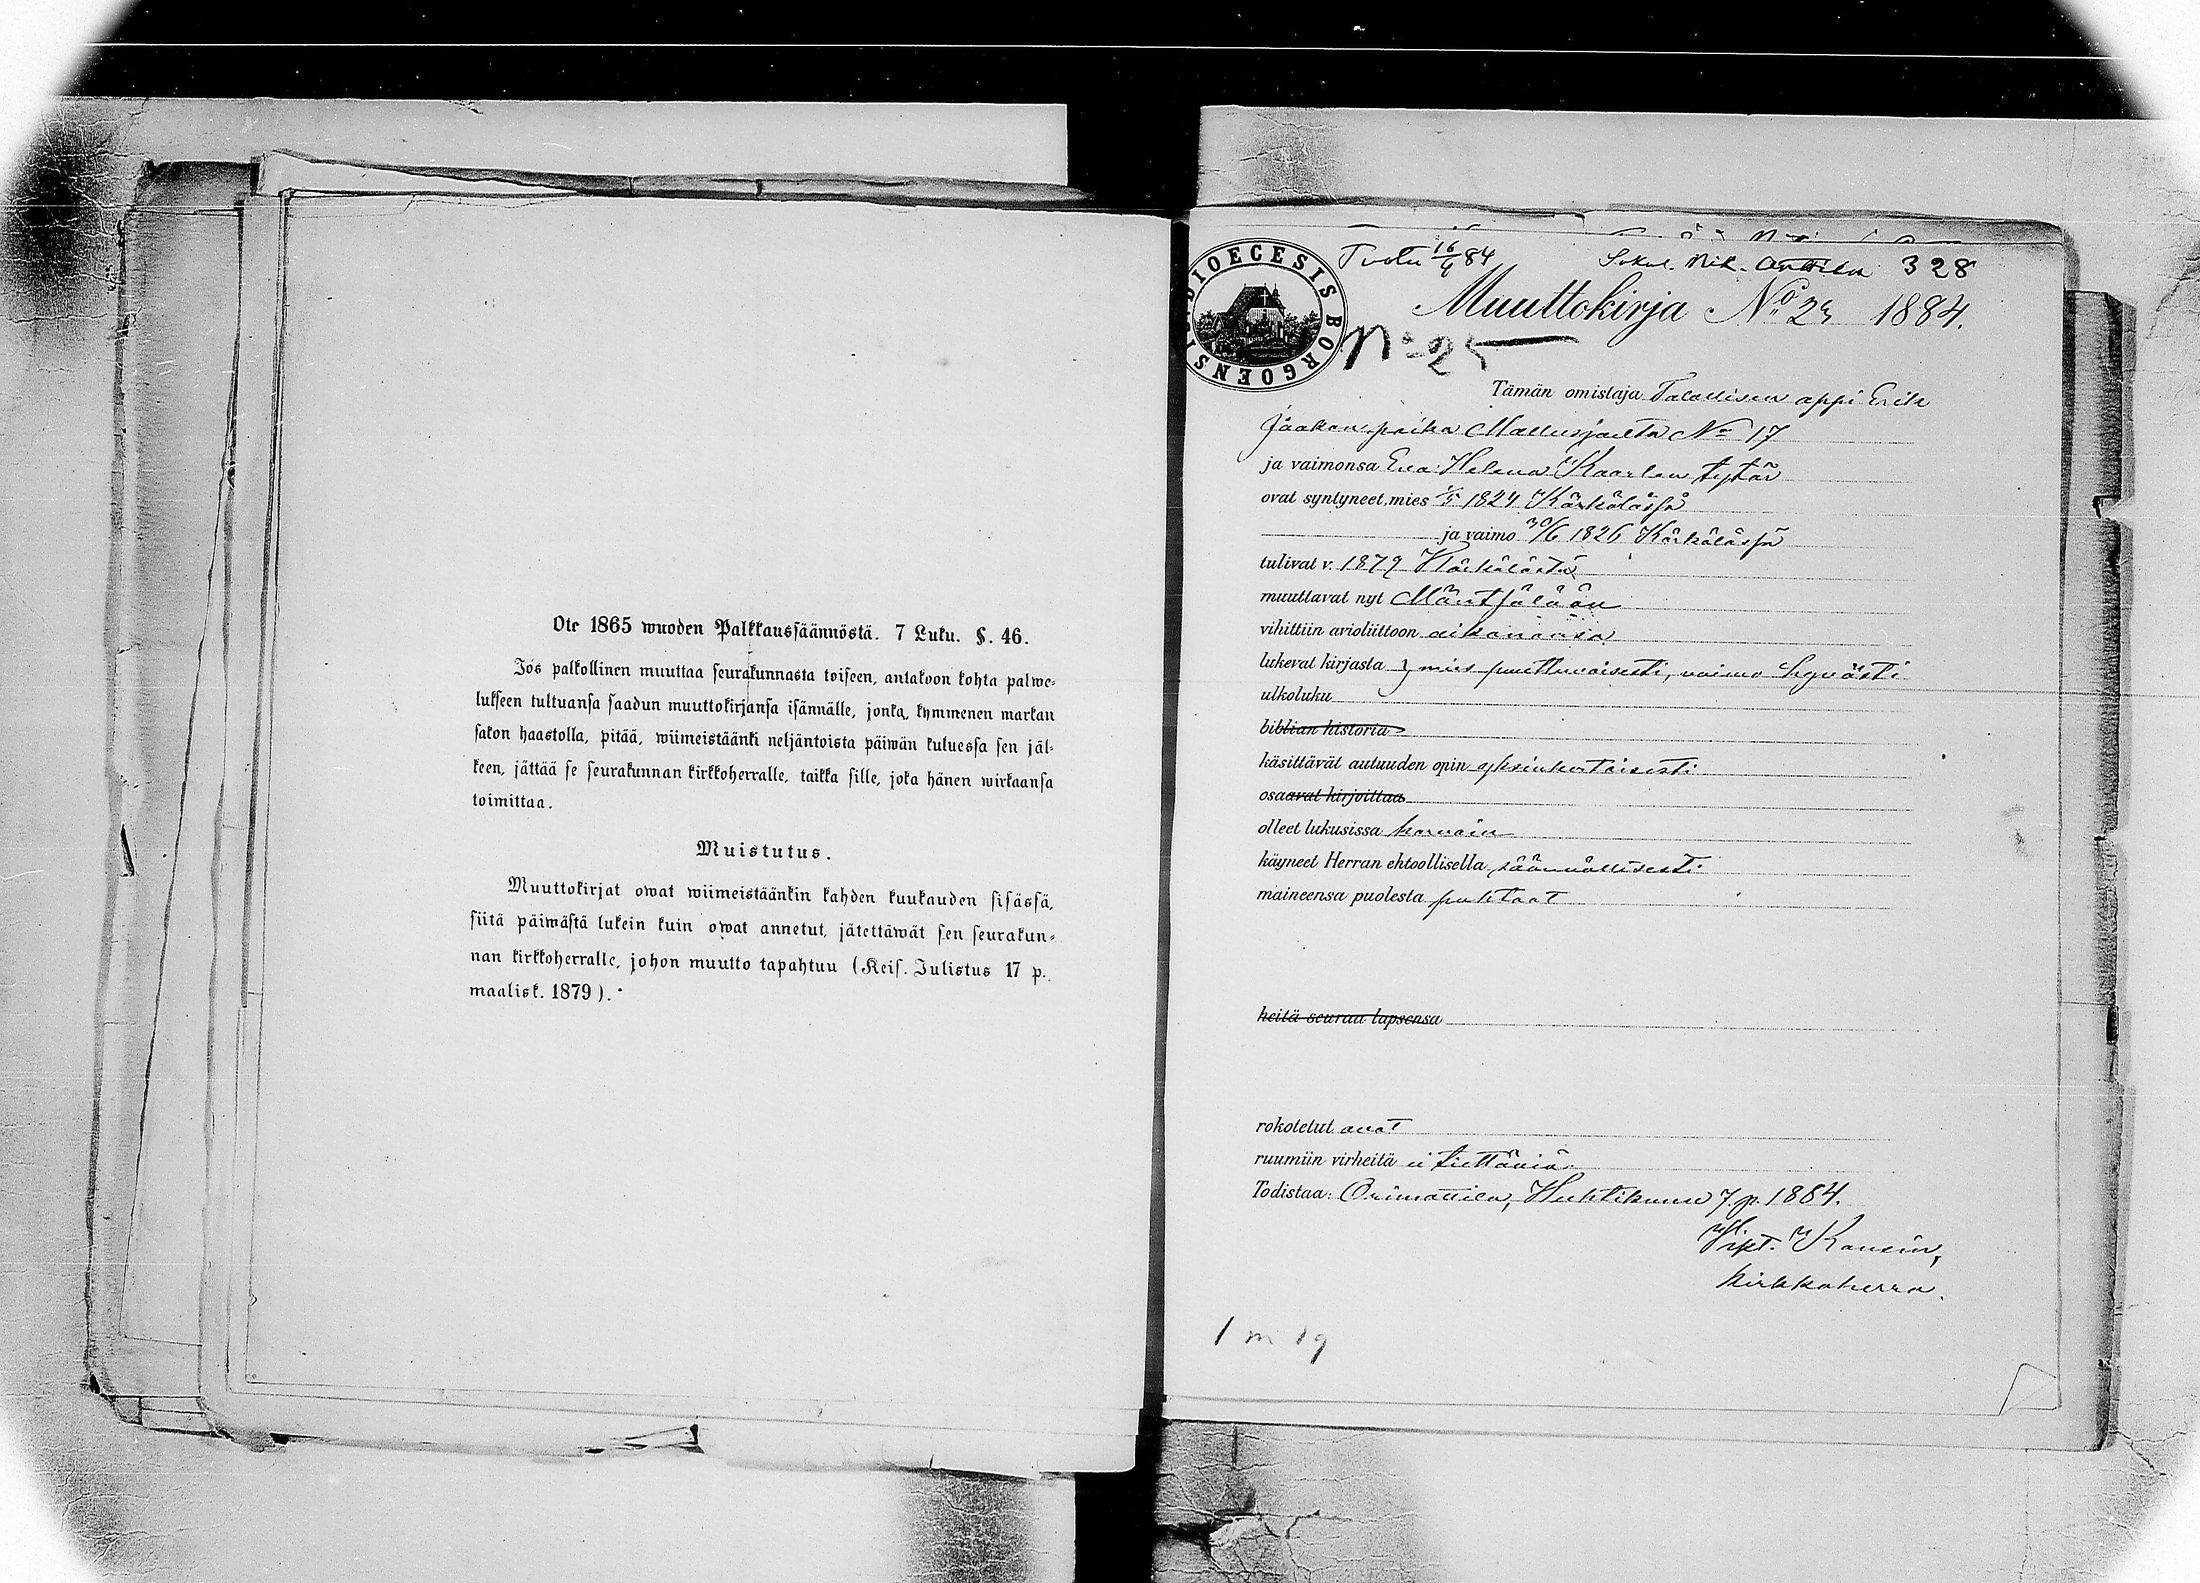 Ote 1865 wuoden Palkkaussäännöstä. 7 Luku. §. 46.
Jos palkollinen muuttaa seurakunnasta toiseen, antakoon kohta palwe-
lukseen tultuansa saadun muuttokirjansa isännälle, jonka, kymmenen markan
sakon haastolla, pitää, wiimeistäänki neljäntoista päiwän kuluessa sen jäl-
keen, jättää se seurakunnan kirkkoherralle, taikka sille, joka hänen wirkaansa
toimittaa.
Muistutus.
Muuttokirjat owat wiimeistäänkin kahden kuukauden sisässä,
siitä päiwästä lukein kuin owat annetut, jätettäwät sen seurakun-
nan kirkkoherralle, johon muutto tapahtuu (Keis. Julistus 17 p.
maalisk. 1879).
Tuotu 16/4 84
328
DIOECESIS BORGOENSIS
Muuttokirja No 23 1884.
No 25
Tämän omistaja Talollisen appi Erik
Jaakon poika Mallusjoelta No 17
ja vaimonsa Eva Helena Kaarlen tytär
ovat syntyneet, mies 1824 Kärkölässä
ja vaimo 30/6 1826 Kärkölässä
tulivat v. 1879 Kärkölästä
muuttavat nyt Mäntsälään
vihittiin avioliittoon aikanansa
lukevat kirjasta } mies puuttuvaisesti, vaimo hyvästi
ulkoluku
biblian historia
käsittävät autuuden opin yksinkertaisesti
osaavat kirjoittaa
olleet lukusissa harvoin
käyneet Herran ehtoollisella säännöllisesti
maineensa puolesta puhtaat
heitä seuraa lapsensa
rokotetut ovat
ruumiin virheitä ei tiettäviä
Todistaa: Orimattila, Huhtikuun 7 p. 1884.
Kirkkoherra.
1 m 1 q